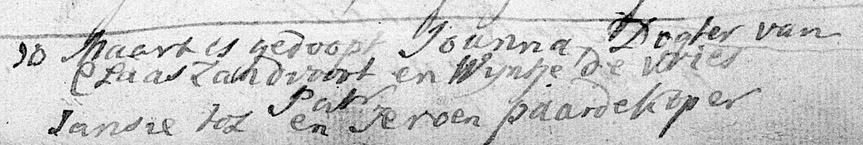 30 Maart is gedoopt Joanna, Dogter van
Claas Zandvoort en Wyntje de Vries
Patr
Jansie tol en Jeroen paardekoper